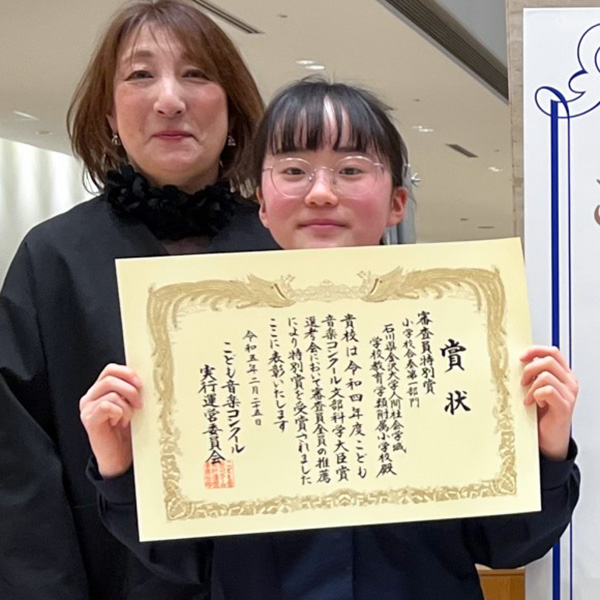 賞状
審査員特別賞
小学校合奏第一部門
石川県金沢大学人間社会学域
学校教育学類附属小学校殿
貴校は令和四年度こども
音楽コンクール文部科学大臣賞
選考会において審査員全員の推薦
により特別賞を受賞つれました
ここに表彰いたします
令和五年二月二十五日
こども音楽コンクール
実行運営委員会